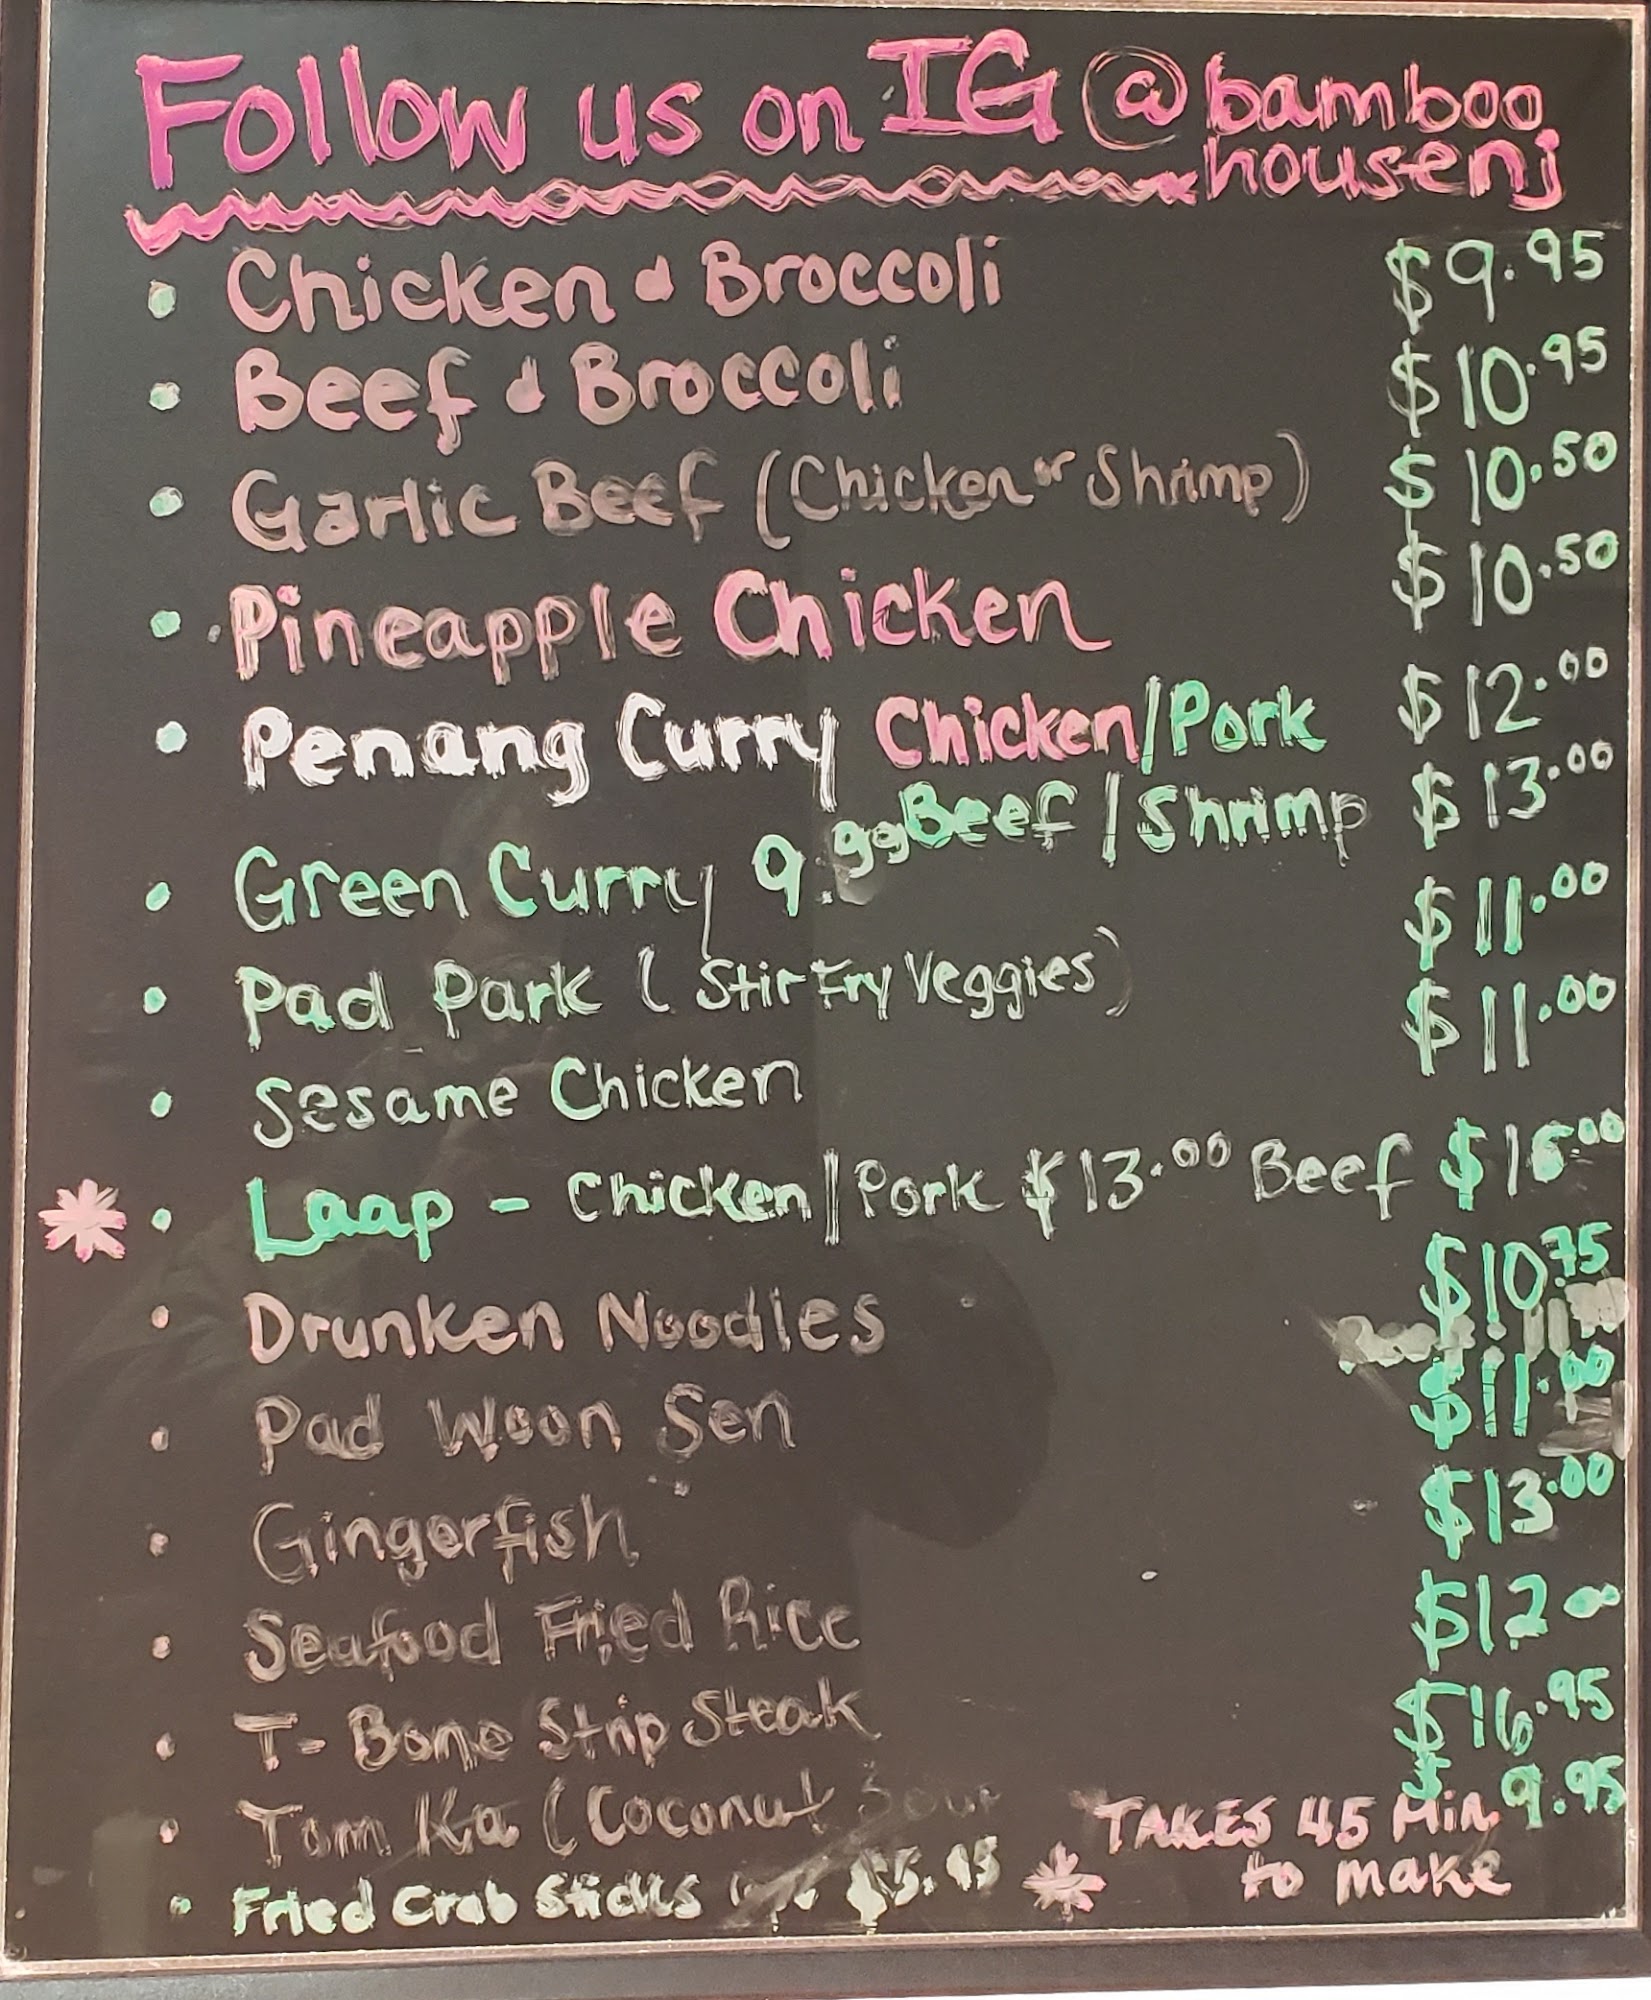 Follow us on IG @bamboo
housenj
• Chicken & Broccoli $9.95
• Beef & Broccoli $10.95
• Garlic Beef (Chicken or Shrimp) $10.50
• Pineapple Chicken $10.50
• Penang Curry Chicken/Pork $12.00
Beef/Shrimp $13.00
• Green Curry 9.99
• Pad Park (Stir Fry Veggies) $11.00
• Sesame Chicken $11.00
* • Laap - Chicken/Pork $13.00 Beef $15.00
• Drunken Noodles $10.75
• Pad Woon Sen $11.00
• Gingerfish $13.00
• Seafood Fried Rice $12.00
• T-Bone Strip Steak $16.95
• Tom Ka (Coconut Soup $9.95
• Fried Crab Sticks $5.95
* TAKES 45 Min
to make